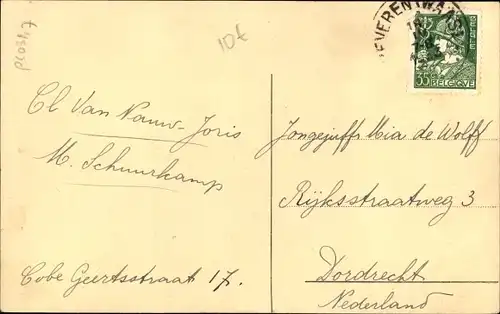 10€
EVEREN (WAAS)
35
BELGIQUE
Cl Van Nauw-Joris
M. Schuurkamp
Cobe Geertsstraat 17.
Jongejuff. Mia de Wolff
Rijksstraatweg 3
Dordrecht
Nederland